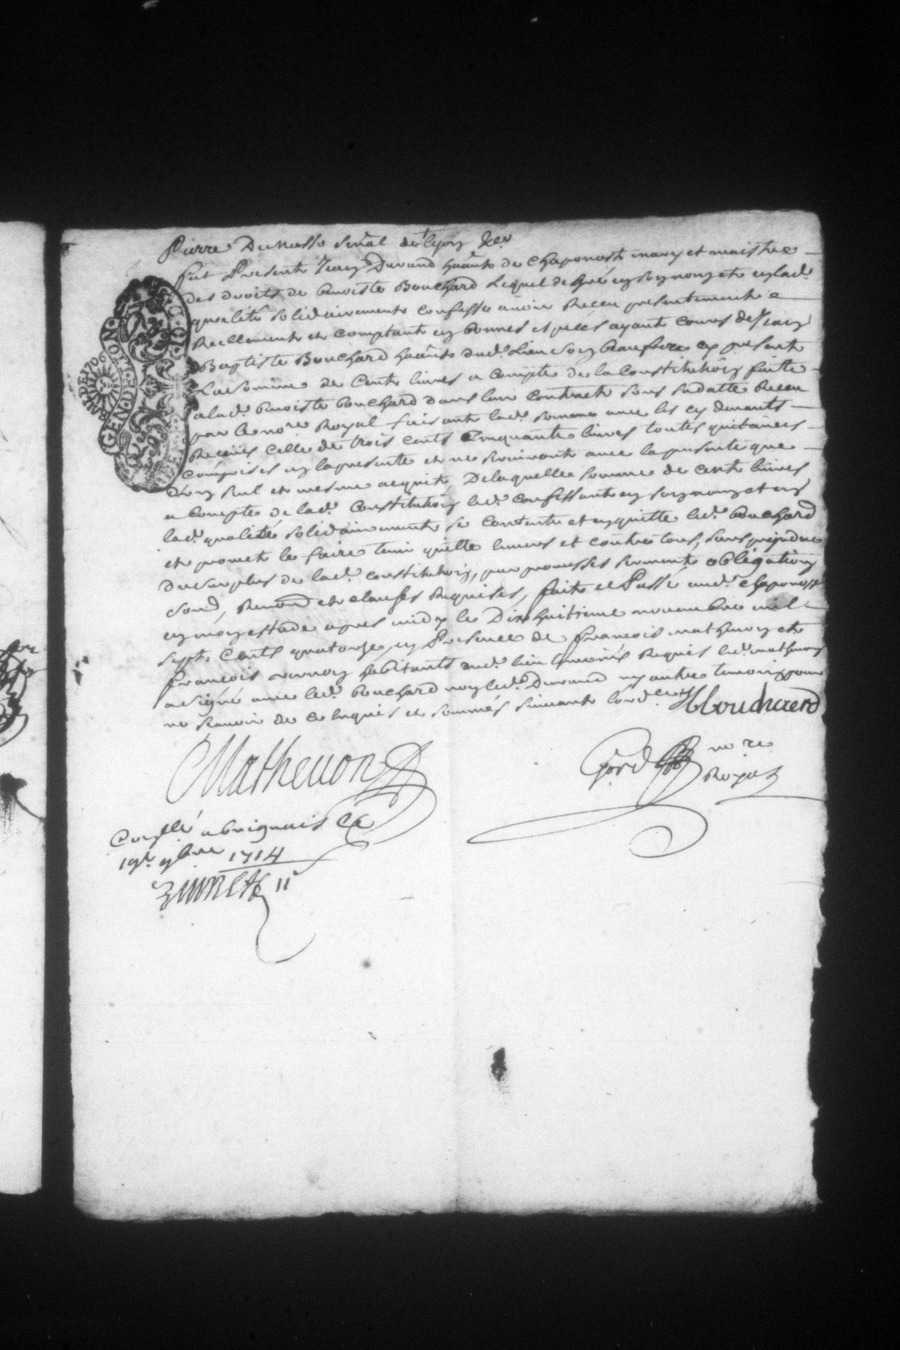 Pierre Dumasso senal de lyon &ca
fut Present Jean Durand habt de Chaponost mary et maistre
des droits de Benoiste Bouchard Lequel de gré en son nom et en lad.
qualité solidairement confesse avoir Receu presentement
Reellement et comptant en bonnes especes ayant cours de Jean
Baptiste Bouchard habt dud. Lieu son beaufrere cy present
La somme de Cent livres a compte de la Constitution faitte
a lad. Benoiste Bouchard dans leur Contract sous sa datte Receu
par le nore Royal faisant lad. somme avec les cy devants
Receus Celle de trois cents Cinquante livres toutes quitances
comprises en la presente et ne serviront avec la presente que
d'un seul et mesme acquit, De laquelle somme de cent livres
a compte de lad. Constitution led. confessant en son nom et en
lad. qualité solidairement se contente et en quitte led. Bouchard
et promet le faire tenir quitte envers et contre tous, sans prejudice
du surplus de lad. constitution, par promesses serment obligation
Soud, Renond et clauses Requises, faite et Passé aud. Chaponost
en mon estude apres midy le Dix huitieme novembre mil
sept Cents quatorze, en Presence de François mathevon et
François habitants aud. lieu temoins Requis led. mathevon
a signé avec led. Bouchard non led. Durand ny autre temoin pour
ne scavoir de ce Enquis et sommés suivant lord.
JBBouchard
Mathevon
nore
Royal
Conllé a brignais le
19e 9bre 1714